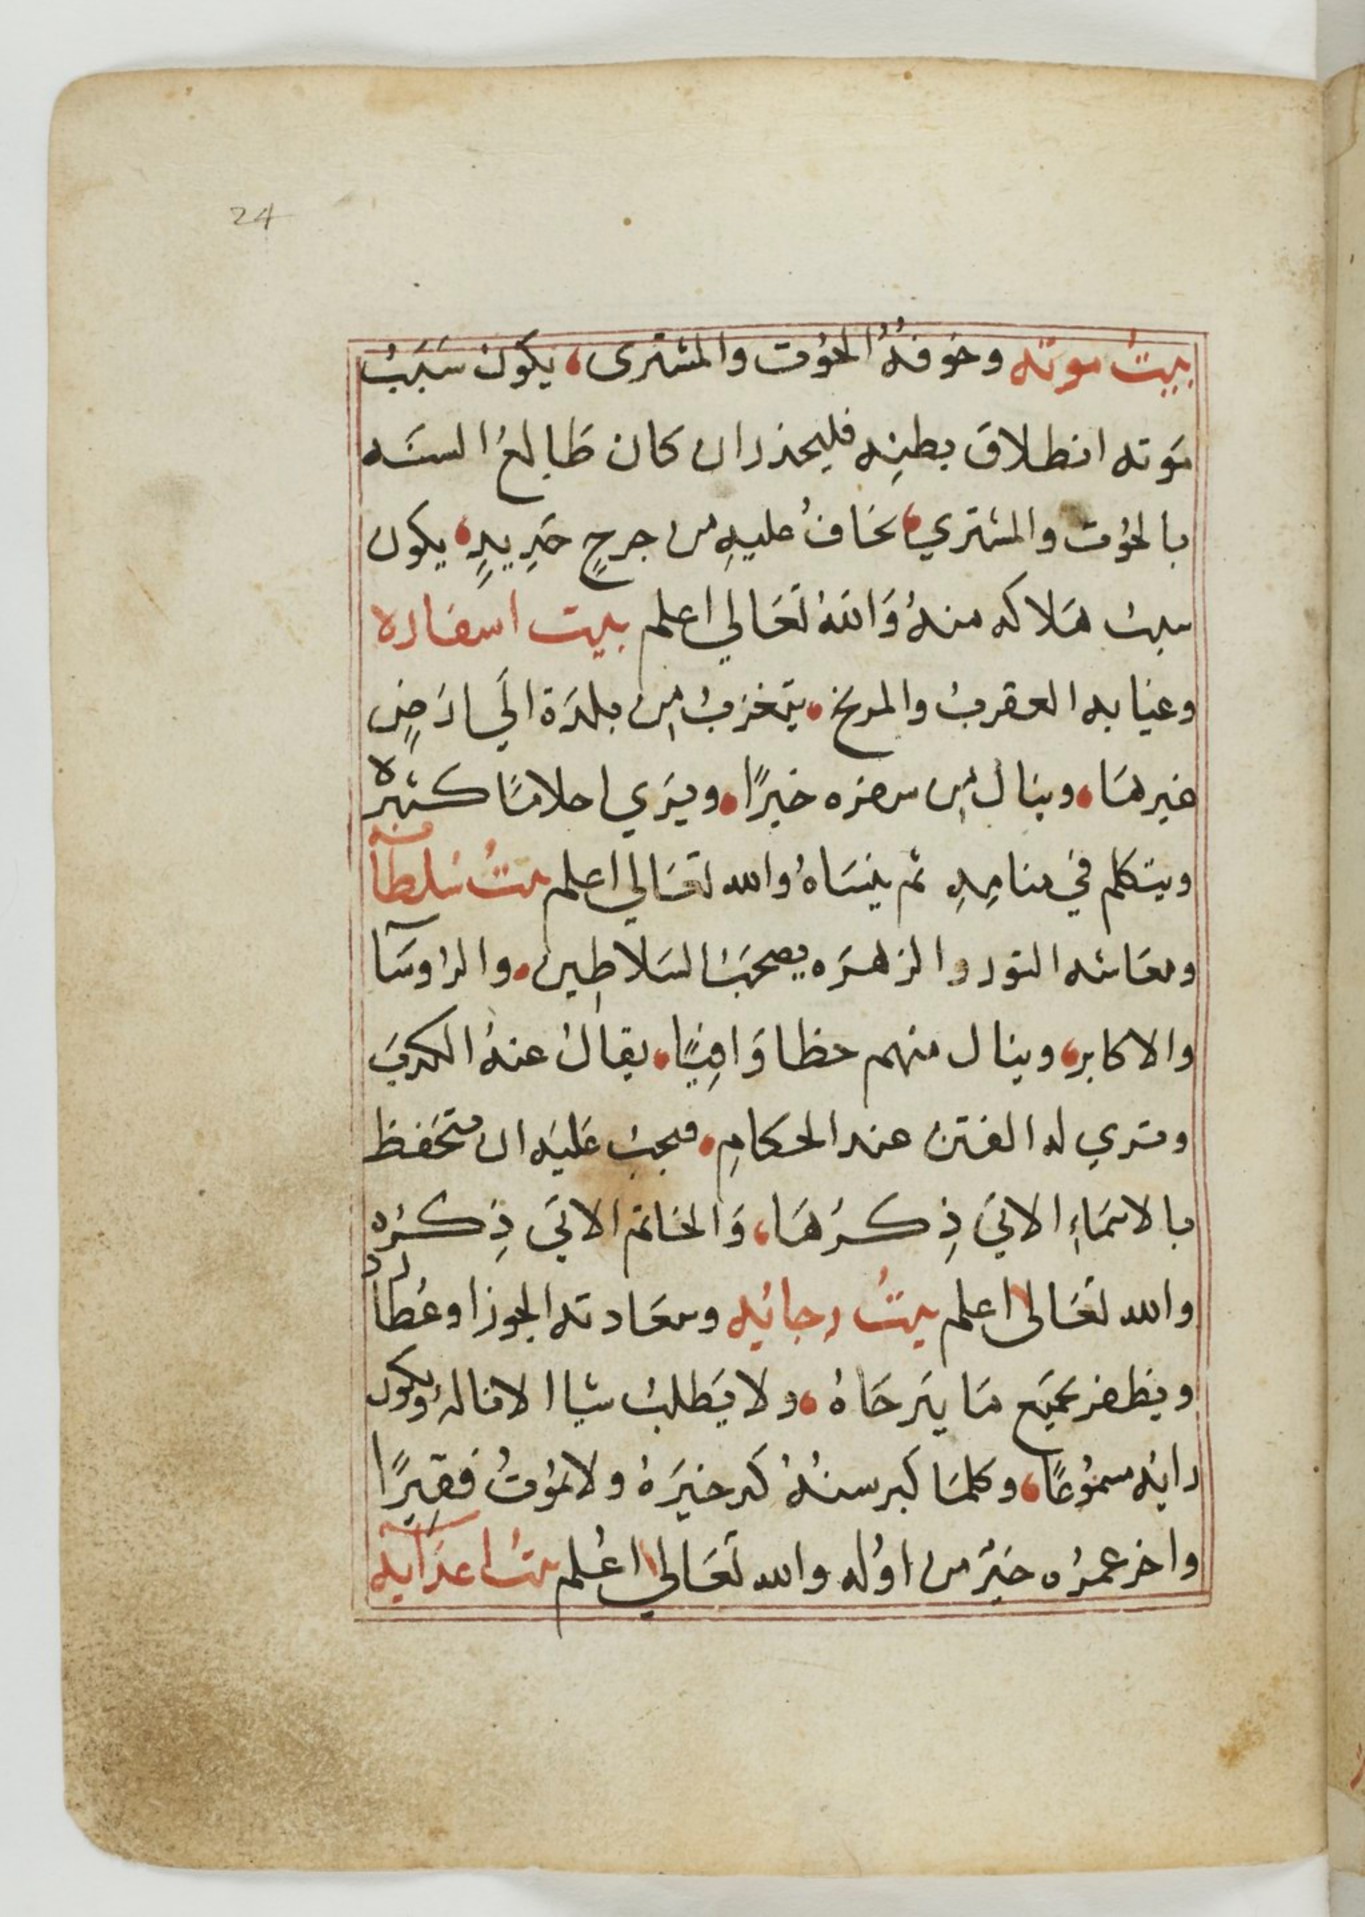 24
بيتُ موته وخوفهُ الحُوت والمشترى، يكونُ سَبَبُ
مَوته انطلاق بطنِه فليحذر ان كان طَالعُ السنَه
بالحُوت والمشتري، يخافُ عليهِ من جرحٍ حَدِيدٍ، يكون
سببُ هَلاكه منهُ وَاللهُ تَعَالي اعلم بيت اسفاره
وغيابه العقربُ والمريخ، يتغربُ مِن بلدَة الَي ارَضٍ
غيرهَا، وينال مِن سفره خيرًا، ويَري احلامًا كثيره
ويتكلم في منامِهِ ثم ينسَاهُ والله تعَالي اعلم بيتُ سُلطانه
ومعَاشه الثور والزهرَه يصحبُ السَلاطِين، والروسَآ
والاكابر، وينال منهم حظا وَافِيًا، يقالُ عنهُ الكذبَ
وتري له الفتن عند الحكامِ، فيجبُ عَليَه ان يتحَفظ
بالاسمَاءِ الاتي ذِكرُهَا، وَالخاتم الاتَي ذِكرُه
والله تَعَالى اعلم بيتُ رجائِه وسعَادته الجوزا وعُطارد
ويظفر بجميَع مَا يترجَاهُ، ولا يَطلبُ شيا الا نالهُ ويكون
رايُه مسمُوعًا، وكلمَا كبر سنُهُ كثر خيرَهُ ولا يمُوتُ فقِيرًا
واخر عمرُه خيرٌ من اوُله والله تَعَالي اعُلم بيتُ اعدَآيه